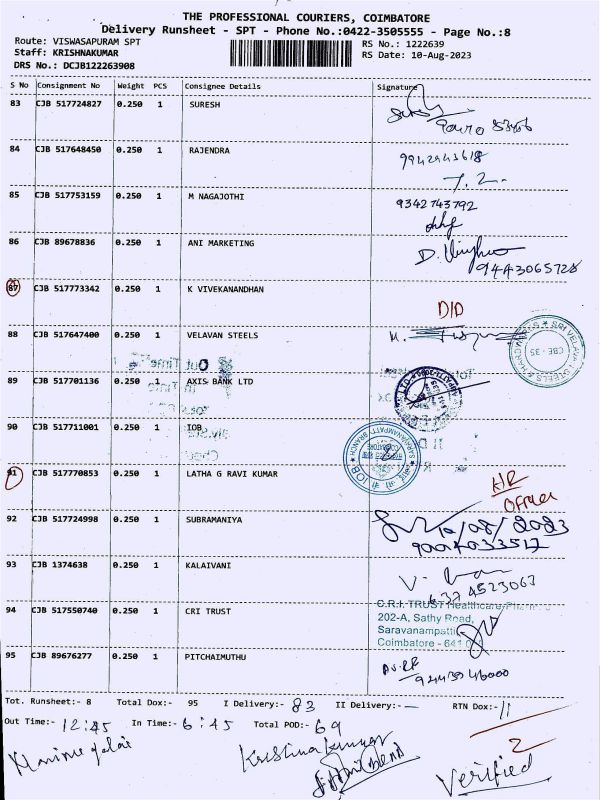 THE PROFESSIONAL COURIERS, COIMBATORE
Delivery Runsheet - SPT - Phone No.:0422-3505555 - Page No.:8
Route: VISWASAPURAM SPT RS No.: 1222639
Staff: KRISHNAKUMAR RS Date: 10-Aug-2023
DRS No.: DCJB122263908
S No Consignment No Weight PCS Consignee Details Signature
83 CJB 517724827 0.250 1 SURESH
84 CJB 517648450 0.250 1 RAJENDRA
85 CJB 517753159 0.250 1 M NAGAJOTHI
9342743792
86 CJB 89678836 0.250 1 ANI MARKETING
9443065728
87 CJB 517773342 0.250 1 K VIVEKANANDHAN
D/D
88 CJB 517647400 0.250 1 VELAVAN STEELS
SRI VELAVA STEELS & HARDWARES
CBE - 35
89 CJB 517701136 0.250 1 AXIS BANK LTD
90 CJB 517711001 0.250 1 IOB
SARAVANAMPATTI BRANCH
COIMBATORE
IOB
91 CJB 517770853 0.250 1 LATHA G RAVI KUMAR
Officer
92 CJB 517724998 0.250 1 SUBRAMANIYA
10/08/2023
93 CJB 1374638 0.250 1 KALAIVANI
6374523063
94 CJB 517550740 0.250 1 CRI TRUST
C.R.I. TRUST Healthcare
202-A, Sathy Road,
Saravanampatti
Coimbatore - 641
95 CJB 89676277 0.250 1 PITCHAIMUTHU
Tot. Runsheet:- 8 Total Dox:- 95 I Delivery:- 83 II Delivery:- — RTN Dox:- 11
Out Time:- 12:45 In Time:- 6:45 Total POD:- 69
2
Krishnakumar
Verified